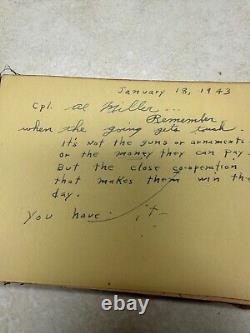 January 18, 1943
Cpl. Al Miller...
Remember
when the going gets tuck
it's not the guns or ornaments
or the money they can pay
But the close co-operation
that makes them win the
day.
You have it